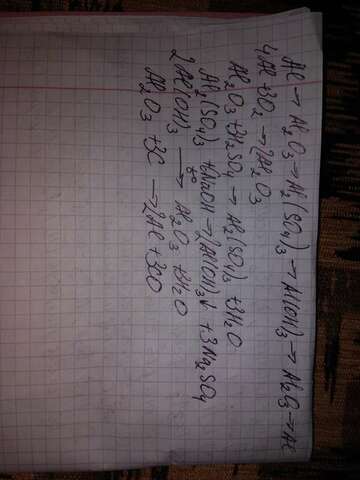 Al → Al₂O₃ → Al₂(SO₄)₃ → Al(OH)₃ → Al₂O₃ → Al
4Al + 3O₂ → 2Al₂O₃
Al₂O₃ + 3H₂SO₄ → Al₂(SO₄)₃ + 3H₂O
Al₂(SO₄)₃ + 6NaOH → 2Al(OH)₃↓ + 3Na₂SO₄
2Al(OH)₃ t° → Al₂O₃ + 3H₂O
Al₂O₃ + 3C → 2Al + 3CO